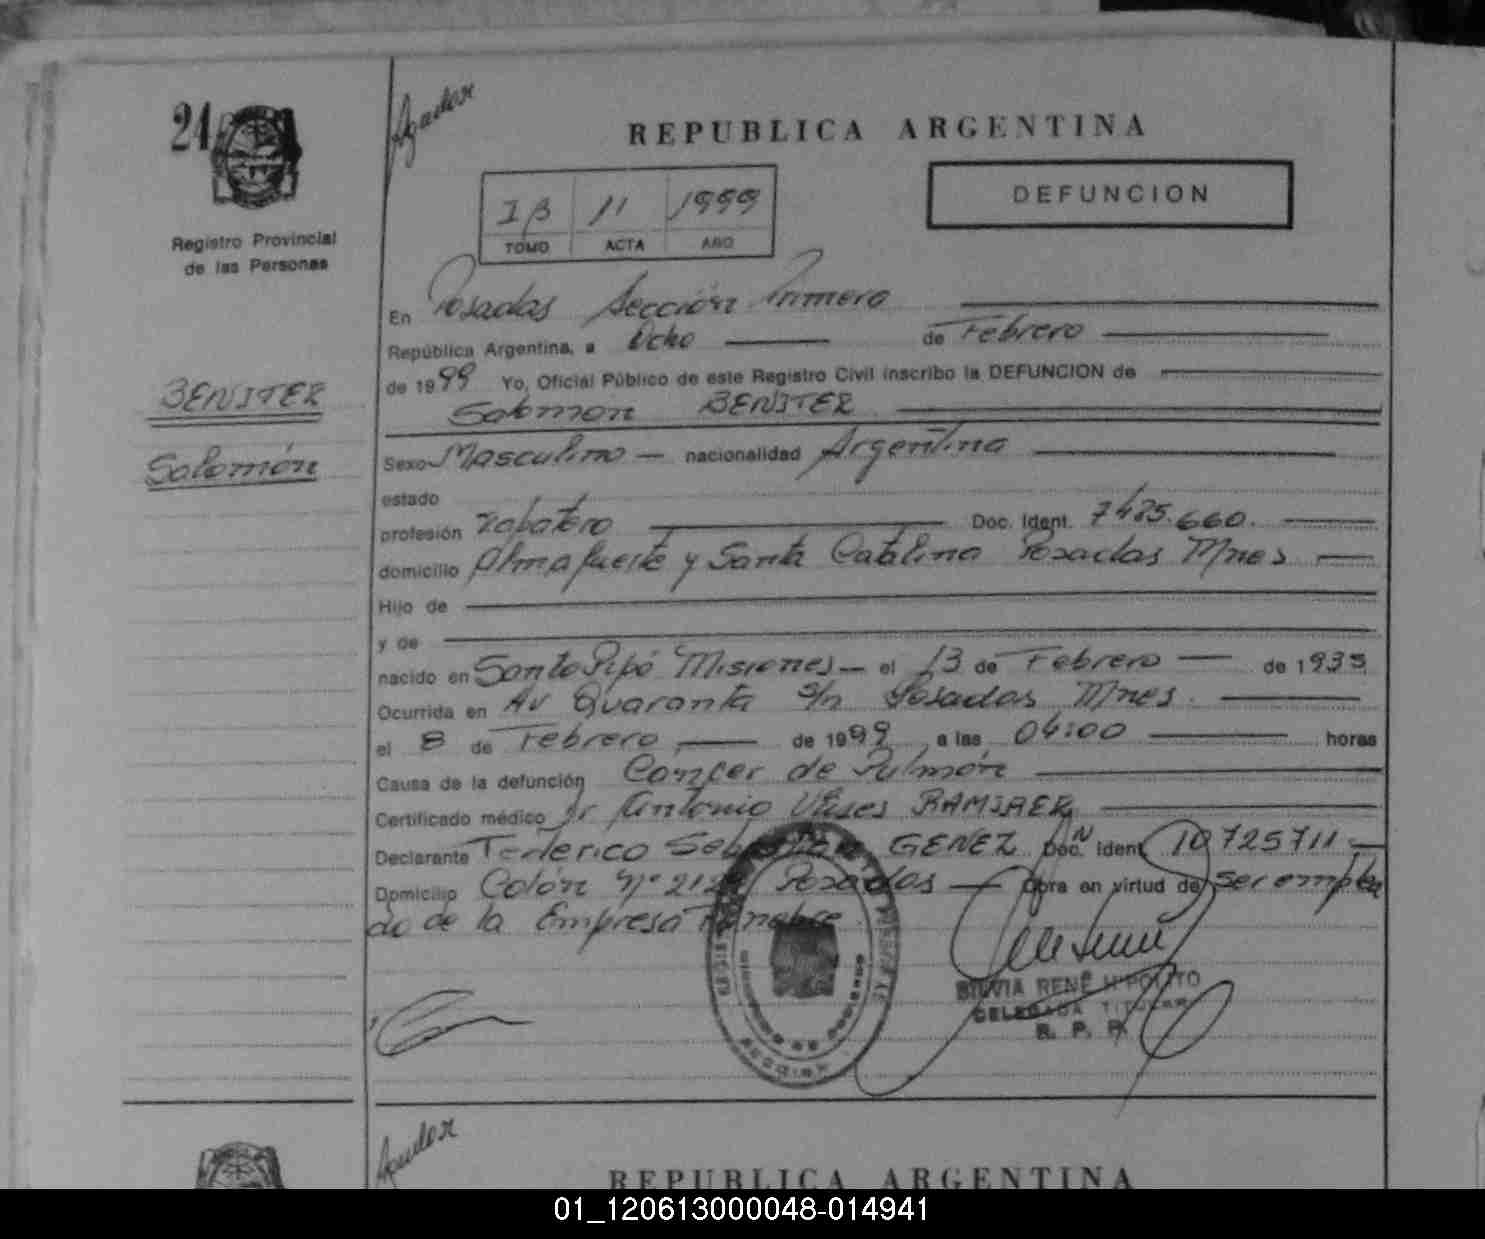 21
Registro Provincial
de las Personas
REPUBLICA ARGENTINA
DEFUNCION
11 1999
TOMO ACTA AÑO
En Posadas Sección Primera
República Argentina, a Ocho de Febrero
de 1999 Yo, Oficial Público de este Registro Civil inscribo la DEFUNCION de
Salomon BENITEZ
BENITEZ
Salomón
Sexo Masculino nacionalidad Argentina
estado
profesión zapatero Doc. Ident. 7.485.660.
domicilio Almafuerte y Santa Catalina Posadas Mnes
Hijo de
y de
nacido en Santo Pipó Misiones el 13 de Febrero de 1935
Ocurrida en Av Quaranta s/n Posadas Mnes.
el 8 de Febrero de 1999 a las 04:00 horas
Causa de la defunción Cancer de Pulmón
Certificado médico Dr Antonio Ulises RAMIREZ
Declarante Federico Sebastian GENEZ Doc. Ident 10725711
Domicilio Colón Nº Posadas Obra en virtud de ser emplea
do de la Empresa Funebre.
SILVIA RENÉ HIPOLITO
DELEGADA TITULAR
R. P. P.
REPUBLICA ARGENTINA
01_120613000048-014941